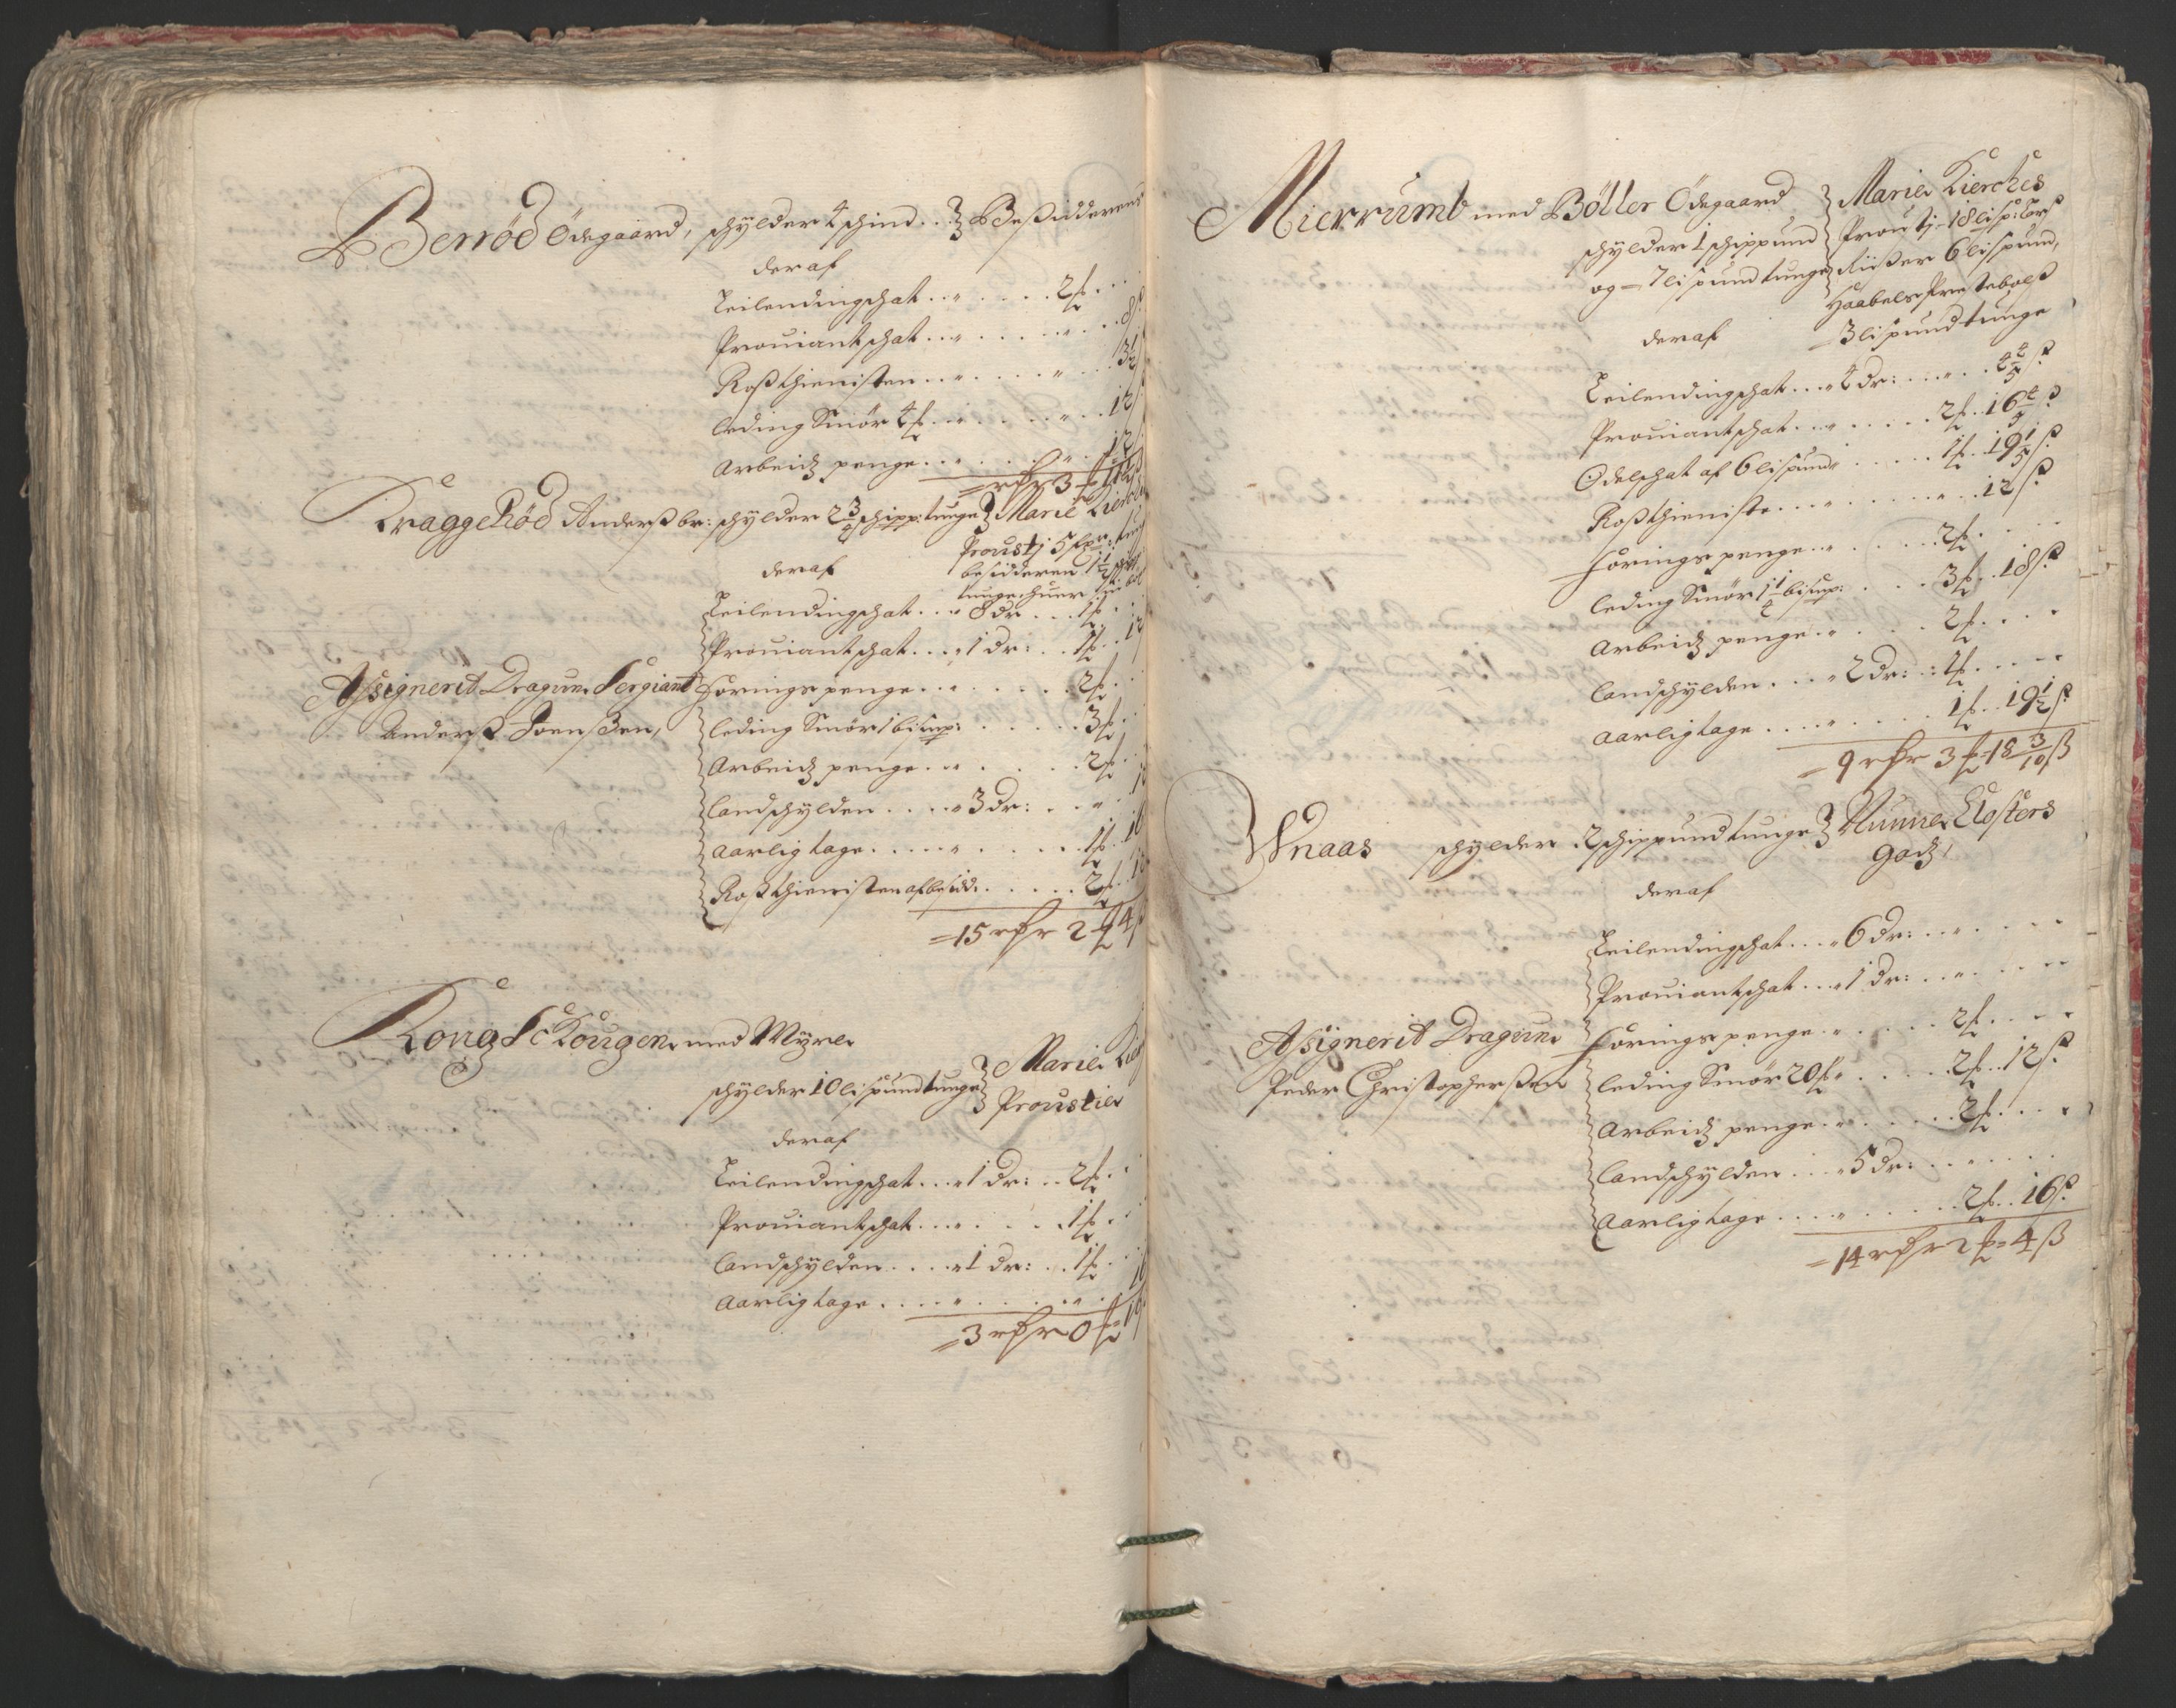 Berrød Ødegaard, schylder 4 schind . . Besidderens
deraf
Leilendingschat . . . 2 ₶
Prouiantschat . . . 8 ß
Rosthienisten . . . 3½
leding Smør 4 ₶ . . . 12
Arbeidz penge . . . 12
Kraggerød Anderss br: schylder 2¾ schipp: tunge Marie Kierches
Proustj 5
besidderen 1½
tunge
deraf
Leilendingschat . . 8 dr . . 1 ₶
Prouiantschat . . . 1 dr: . . 1 ₶
Assignerit Dragun Sergiant
Anders Joensen,
Forings penge . . . 2 ₶
leding Smør 1 bismp: . . . 3 ₶
Arbeidz penge . . . 2 ₶
landschylden . . . 3 dr:
aarlig tage . . . 1 ₶ 16
Rosthienisten af besidd: . . . 2 ₶
= 15 rdr 2 ₶ 4 ß
Kongs Schougen med Myre
schylder 10 lispund tunge Marie
Proustie
deraf
Leilendingschat . . . 1 dr: . . 2 ₶
Prouiantschat . . . 1 ₶
landschylden . . . 1 dr: . . 1 ₶
aarlig tage . . . 16
= 3 rdr 0 ₶ 16
Mierrumb med Böller Ødegaard
schylder 1 schippund
og = 7 lispund tunge
Marie Kierches
Proustj 18 lisp: Lars
Riisser 6 lispund,
Haabels Prestebols
3 lispund tunge
deraf
Leilendingschat . . . 4 dr: . . . 4⅘ ß
Prouiantschat . . . 2 ₶ . 16⅘ ß
Odelschat af 6 lispund . . . 1 ₶ . 19⅕ ß
Rosthieniste . . . 12 ß
forings penge . . . 2 ₶
leding Smør 1¼ bismp: . . . 3 ₶ . . 18 ß
Arbeidz penge . . . 2 ₶
landschylden . . . 2 dr: . 2 ₶
aarlig tage . . . 1 ₶ . . 19½ ß
= 9 rdr 3 ₶ 18 3/10 ß
Wnaas schylder 2 schippund tunge Nunne Closters
godz,
deraf
Leilendingschat . . . 6 dr:
Prouiantschat . . . 1 dr:
Assignerit Dragun
Peder Christophersen
Forings penge . . . 2 ₶
leding Smør 20 ₶ . . . 2 ₶ . . 12 ß
Arbeidz penge . . . 2 ₶
landschylden . . . 5 dr:
aarlig tage . . . 2 ₶ . . 16 ß
= 14 rdr 1 ₶ = 4 ß